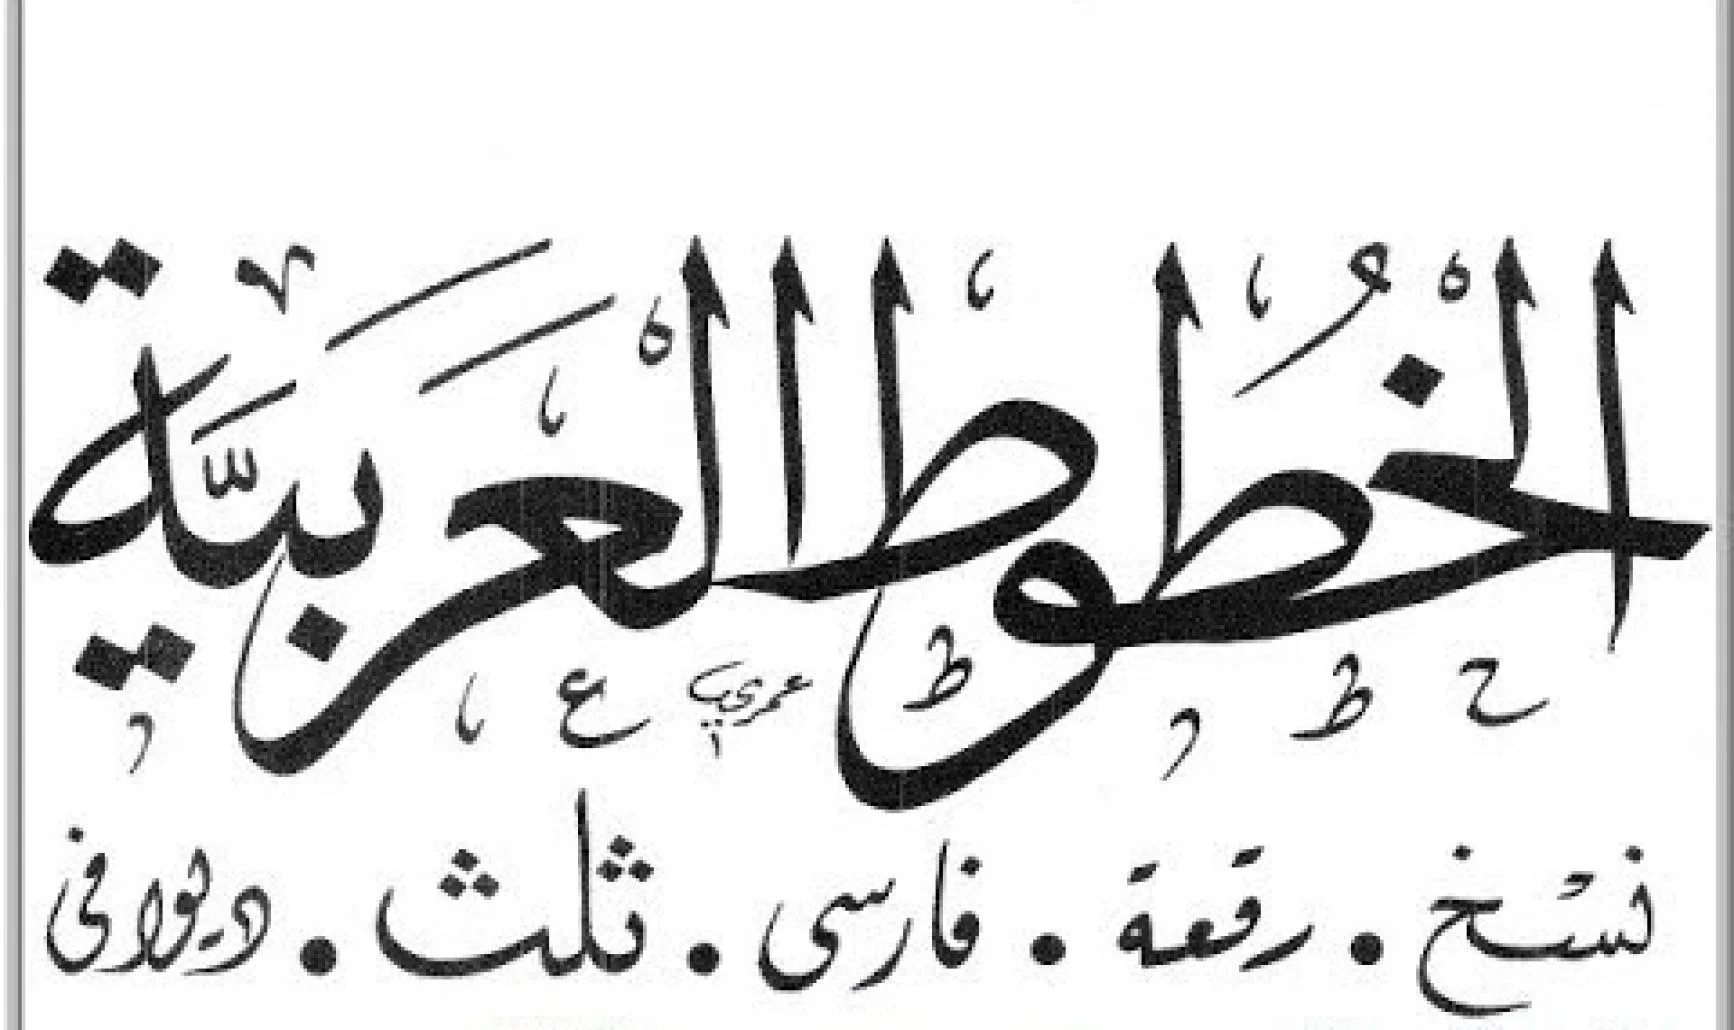 الخُطوط العربيّة
نسخ • رقعة • فارسي • ثلث • ديواني